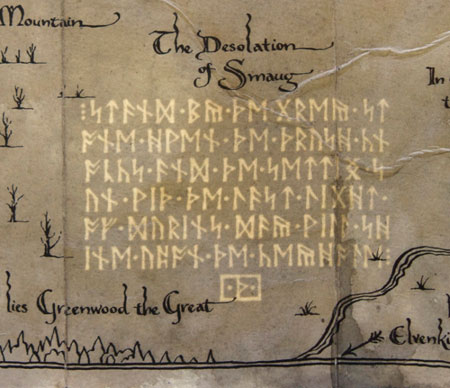 Mountain
The Desolation
of Smaug
In
᛬ᛋᛏᚪᚾᛞ᛫ᛒᚣ᛫ᚦᛖ᛫ᚷᚱᛖᚣ᛫ᛋᛏ
ᚩᚾᛖ᛫ᚻᚹᛖᚾ᛫ᚦᛖ᛫ᚦᚱᚢᛋᚻ᛫ᚳᚾ
ᚩᚳᚳᛋ᛫ᚪᚾᛞ᛫ᚦᛖ᛫ᛋᛖᛏᛏᛁᛝ᛫ᛋ
ᚢᚾ᛫ᚹᛁᚦ᛫ᚦᛖ᛫ᛚᚪᛋᛏ᛫ᛚᛁᚷᚻᛏ᛫
ᚩᚠ᛫ᛞᚢᚱᛁᚾᛋ᛫ᛞᚪᚣ᛫ᚹᛁᛚᛚ᛫ᛋᚻ
ᛁᚾᛖ᛫ᚢᛈᚩᚾ᛫ᚦᛖ᛫ᚳᛖᚣᚻᚩᛚᛖ
᛫ᚦ᛫
lies Greenwood the Great
Elvenki